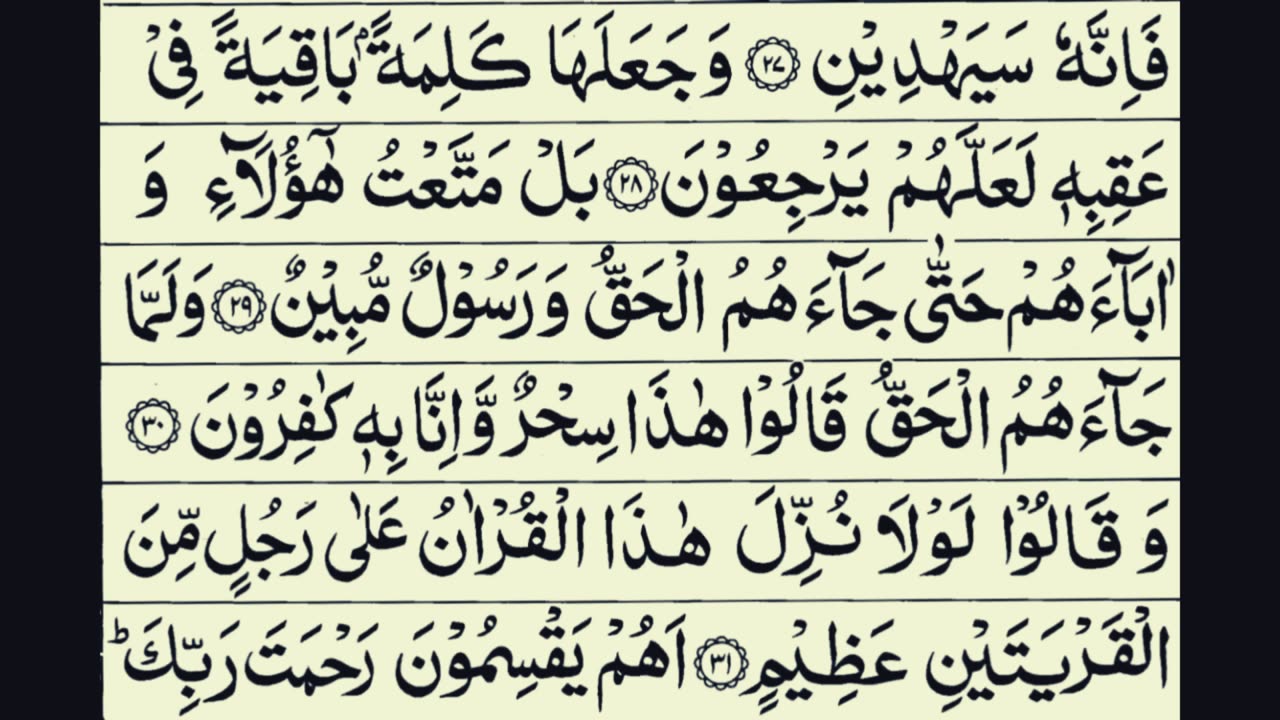 فَاِنَّهٗ سَيَهْدِيْنِ ۝٢٧ وَجَعَلَهَا كَلِمَةًۢ بَاقِيَةً فِيْ
عَقِبِهٖ لَعَلَّهُمْ يَرْجِعُوْنَ ۝٢٨ بَلْ مَتَّعْتُ هٰٓؤُلَآءِ وَ
اٰبَآءَهُمْ حَتّٰى جَآءَهُمُ الْحَقُّ وَرَسُوْلٌ مُّبِيْنٌ ۝٢٩ وَلَمَّا
جَآءَهُمُ الْحَقُّ قَالُوْا هٰذَا سِحْرٌ وَّاِنَّا بِهٖ كٰفِرُوْنَ ۝٣٠
وَ قَالُوْا لَوْلَا نُزِّلَ هٰذَا الْقُرْاٰنُ عَلٰى رَجُلٍ مِّنَ
الْقَرْيَتَيْنِ عَظِيْمٍ ۝٣١ اَهُمْ يَقْسِمُوْنَ رَحْمَتَ رَبِّكَ ؕ